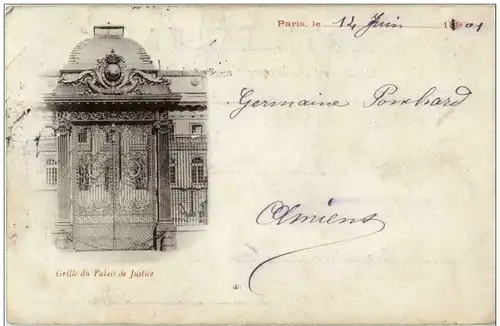 Paris, le 14 Juin 1901
Germaine
Amiens
Grille du Palais de Justice